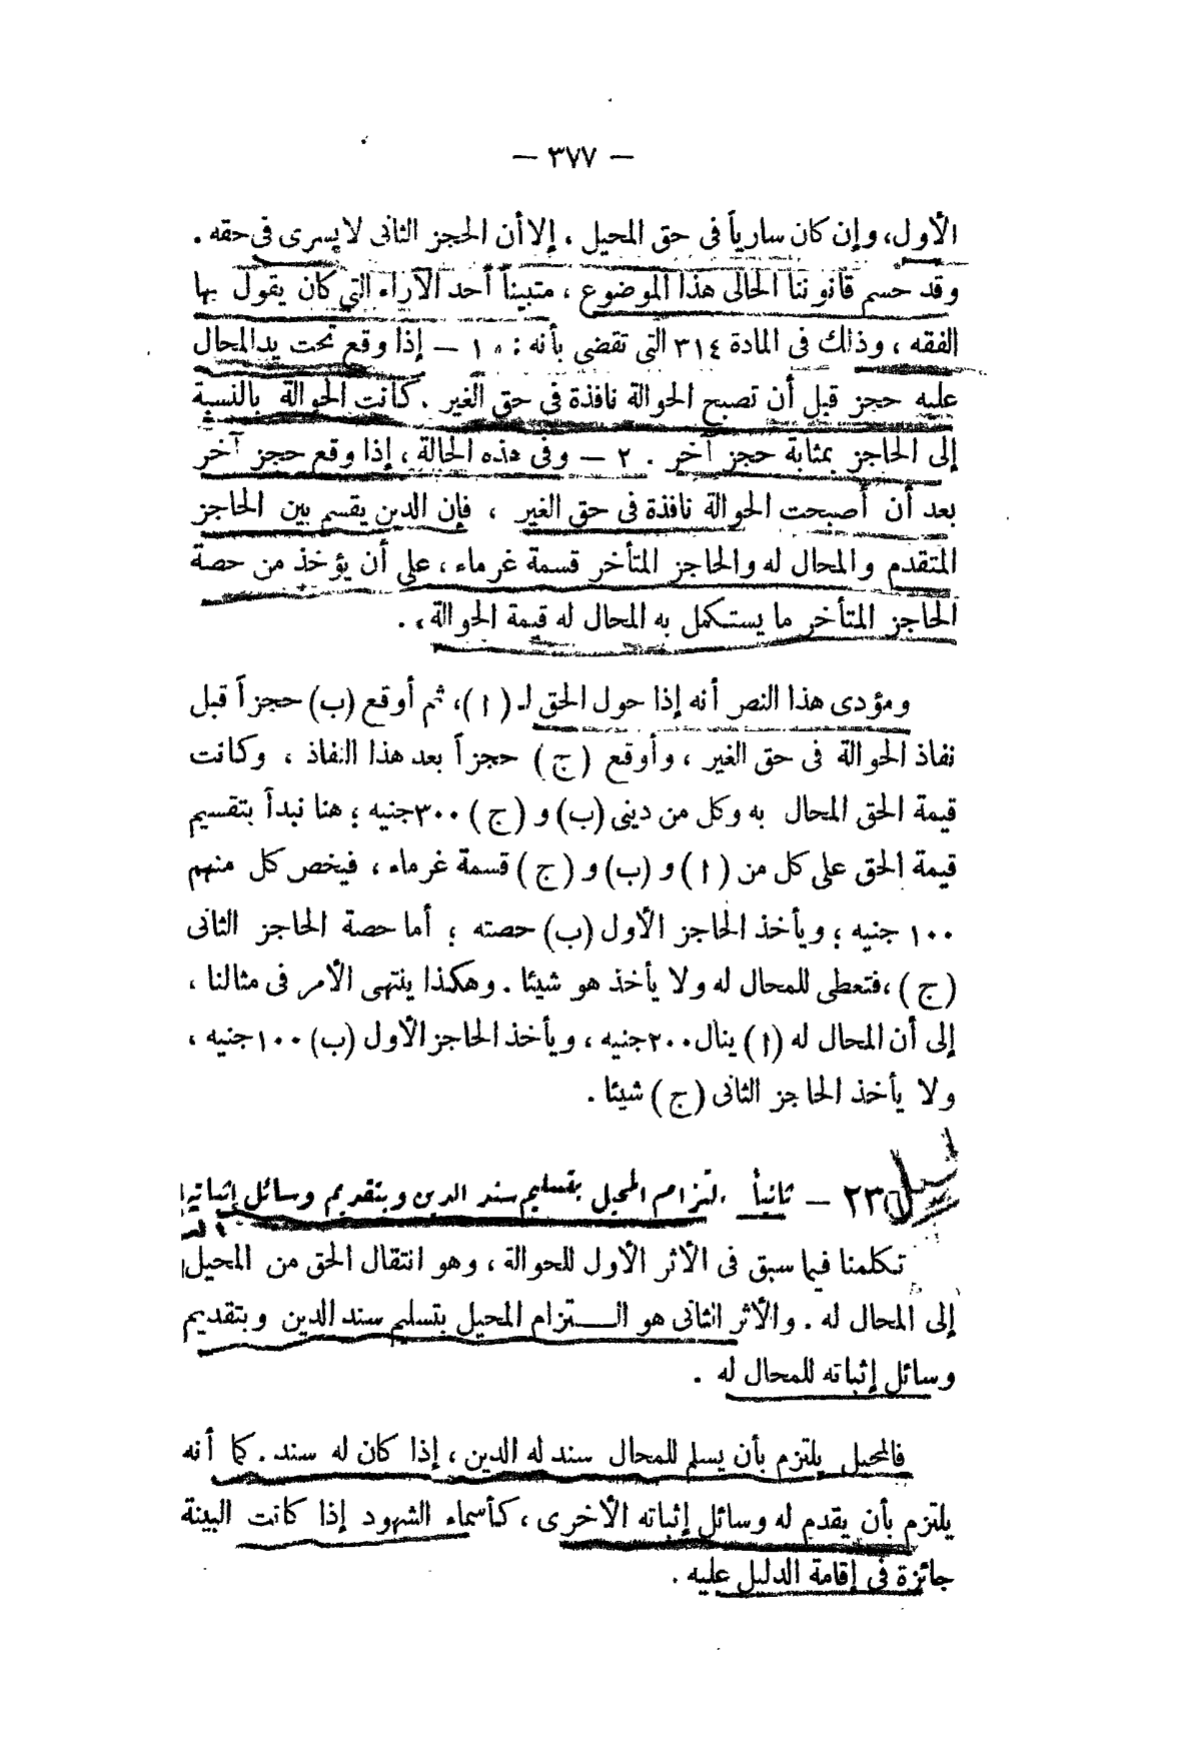 — ٣٧٧ —
الأول، وإن كان سارياً فى حق المحيل ، إلا أن الحجز الثانى لا يسرى فى حقه .
وقد حسم قانوننا الحالى هذا الموضوع ، متبيناً أحد الآراء التي كان يقول بها
الفقه ، وذلك فى المادة ٣١٤ التى تقضى بأنه : « ١ — إذا وقع تحت يد المحال
عليه حجز قبل أن تصبح الحوالة نافذة فى حق الغير . كانت الحوالة بالنسبة
إلى الحاجز بمثابة حجز آخر . ٢ — وفى هذه الحالة ، إذا وقع حجز آخر
بعد أن أصبحت الحوالة نافذة فى حق الغير ، فإن الدين يقسم بين الحاجز
المتقدم والمحال له والحاجز المتأخر قسمة غرماء ، على أن يؤخذ من حصة
الحاجز المتأخر ما يستكمل به المحال له قيمة الحوالة » .
ومؤدى هذا النص أنه إذا حول الحق لـ (ا)، ثم أوقع (ب) حجزاً قبل
نفاذ الحوالة فى حق الغير ، وأوقع (ج) حجزاً بعد هذا النفاذ ، وكانت
قيمة الحق المحال به وكل من دينى (ب) و (ج) ٣٠٠ جنيه ؛ هنا نبدأ بتقسيم
قيمة الحق على كل من (ا) و (ب) و (ج) قسمة غرماء ، فيخص كل منهم
١٠٠ جنيه ؛ ويأخذ الحاجز الأول (ب) حصته ؛ أما حصة الحاجز الثانى
(ج) ،فتعطى للمحال له ولا يأخذ هو شيئا . وهكذا ينتهى الأمر فى مثالنا ،
إلى أن المحال له (ا) ينال ٢٠٠ جنيه ، ويأخذ الحاجز الأول (ب) ١٠٠ جنيه ،
ولا يأخذ الحاجز الثانى (ج) شيئا .
— ثانياً التزام المحيل بتسليم سند الدين وبتقديم وسائل إثباته
تكلمنا فيما سبق فى الأثر الأول للحوالة ، وهو انتقال الحق من المحيل
إلى المحال له . والأثر الثانى هو التزام المحيل بتسليم سند الدين وبتقديم
وسائل إثباته للمحال له .
فالمحيل يلتزم بأن يسلم للمحال سند له الدين ، إذا كان له سند . كما أنه
يلتزم بأن يقدم له وسائل إثباته الأخرى ، كأسماء الشهود إذا كانت البينة
جائزة فى إقامة الدليل عليه .